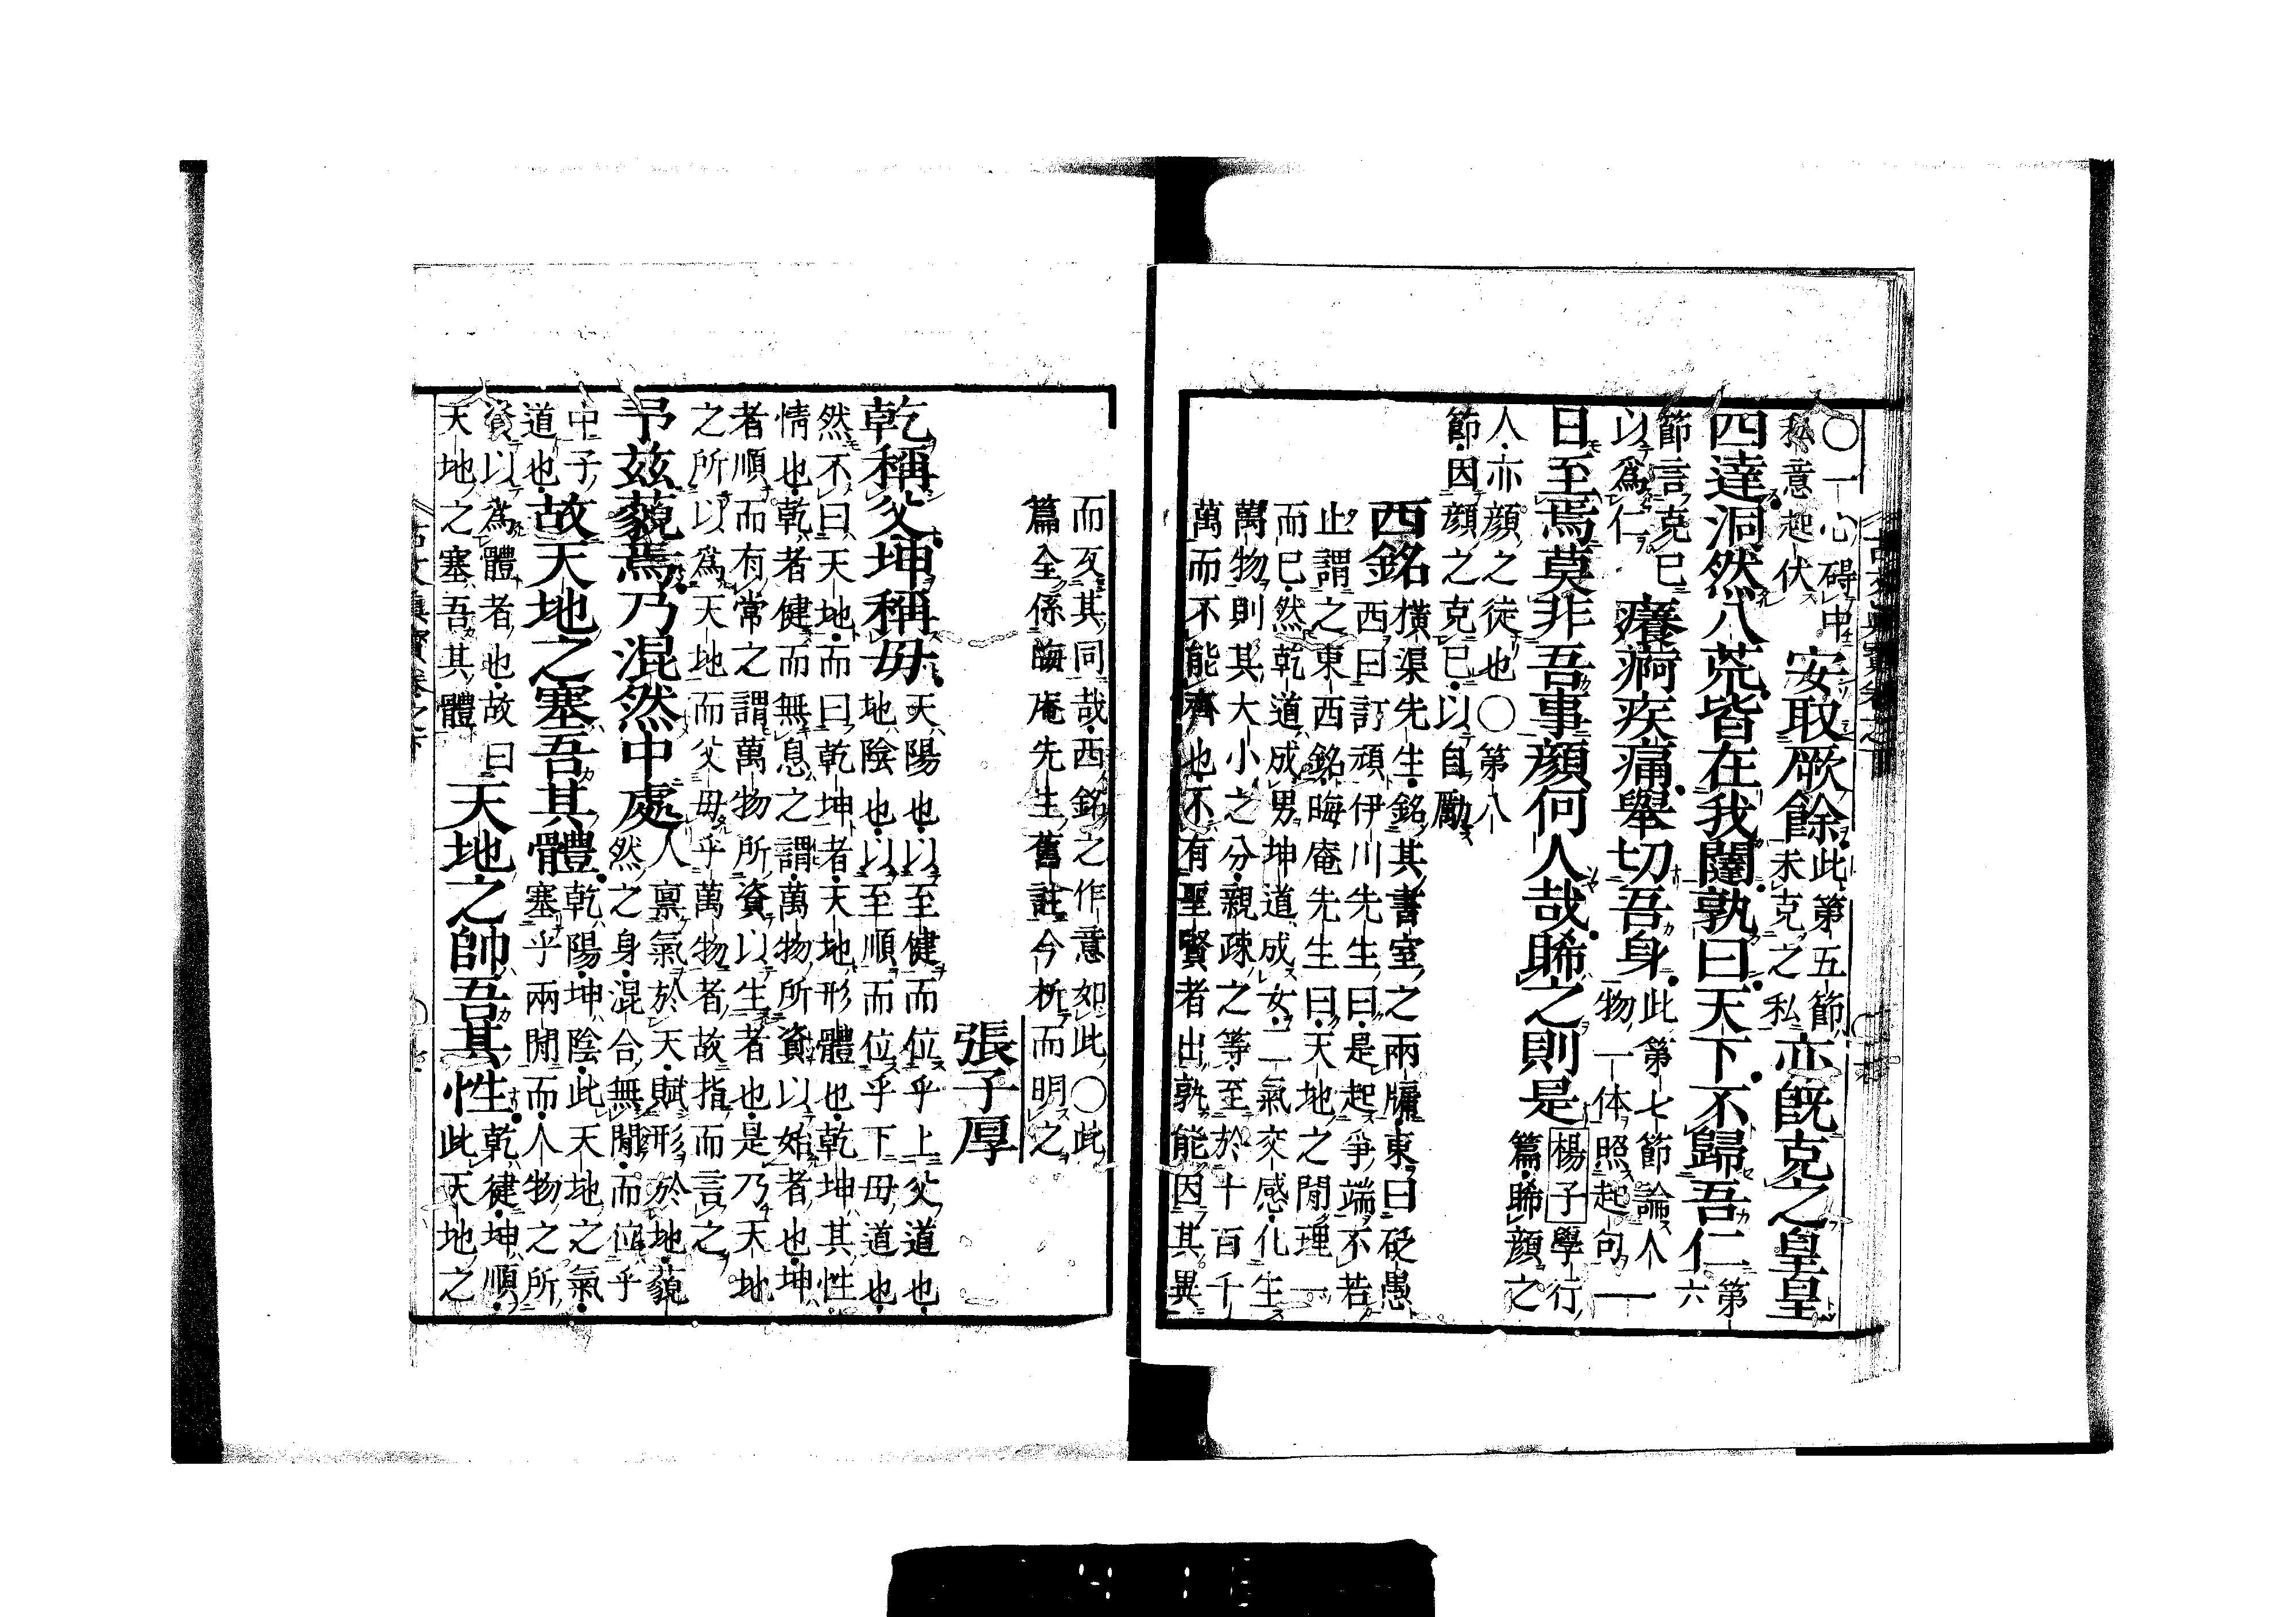 〇一心碍中
私意起伏
安取厥餘
此第五節
未克之私
亦既克之皇皇
四達洞然八荒皆在我闥孰曰天下不歸吾仁
第六
節言克已
以為仁
癢疴疾痛擧切吾身
此第七節論人一
物一体照起句一
日至焉莫非吾事顔何人哉睎之則是
楊子學行
篇睎顔之
人亦顔之徒也〇第八
節因顔之克已以自勵
西銘
橫渠先生銘其書室之兩牖東曰砭愚
西曰訂頑伊川先生曰是起爭端不若
止謂之東西銘晦庵先生曰天地之間理一
而已然乾道成男坤道成女二氣交感化生
萬物則其大小之分親疎之等至於十百千
萬而不能齊也不有聖賢者出孰能因其異
而反其同哉西銘之作意如此〇此
篇全係晦庵先生舊註今析而明之
張子厚
乾稱父坤稱毋
天陽也以至健而位乎上父道也
地陰也以至順而位乎下毋道也
然不曰天地而曰乾坤者天地形體也乾坤其性
情也乾者健而無息之謂萬物所資以始者也坤
者順而有常之謂萬物所資以生者也是乃天地
之所以為天地而父毋乎萬物者故指而言之
予茲藐焉乃混然中處
人禀氣於天賦形於地藐
然之身混合無間而位乎
中子
道也
故天地之塞吾其體
乾陽坤陰此天地之氣
塞乎兩間而人物之所
資以為體者也故曰
天地之塞吾其體
天地之帥吾其性
乾健坤順
此天地之